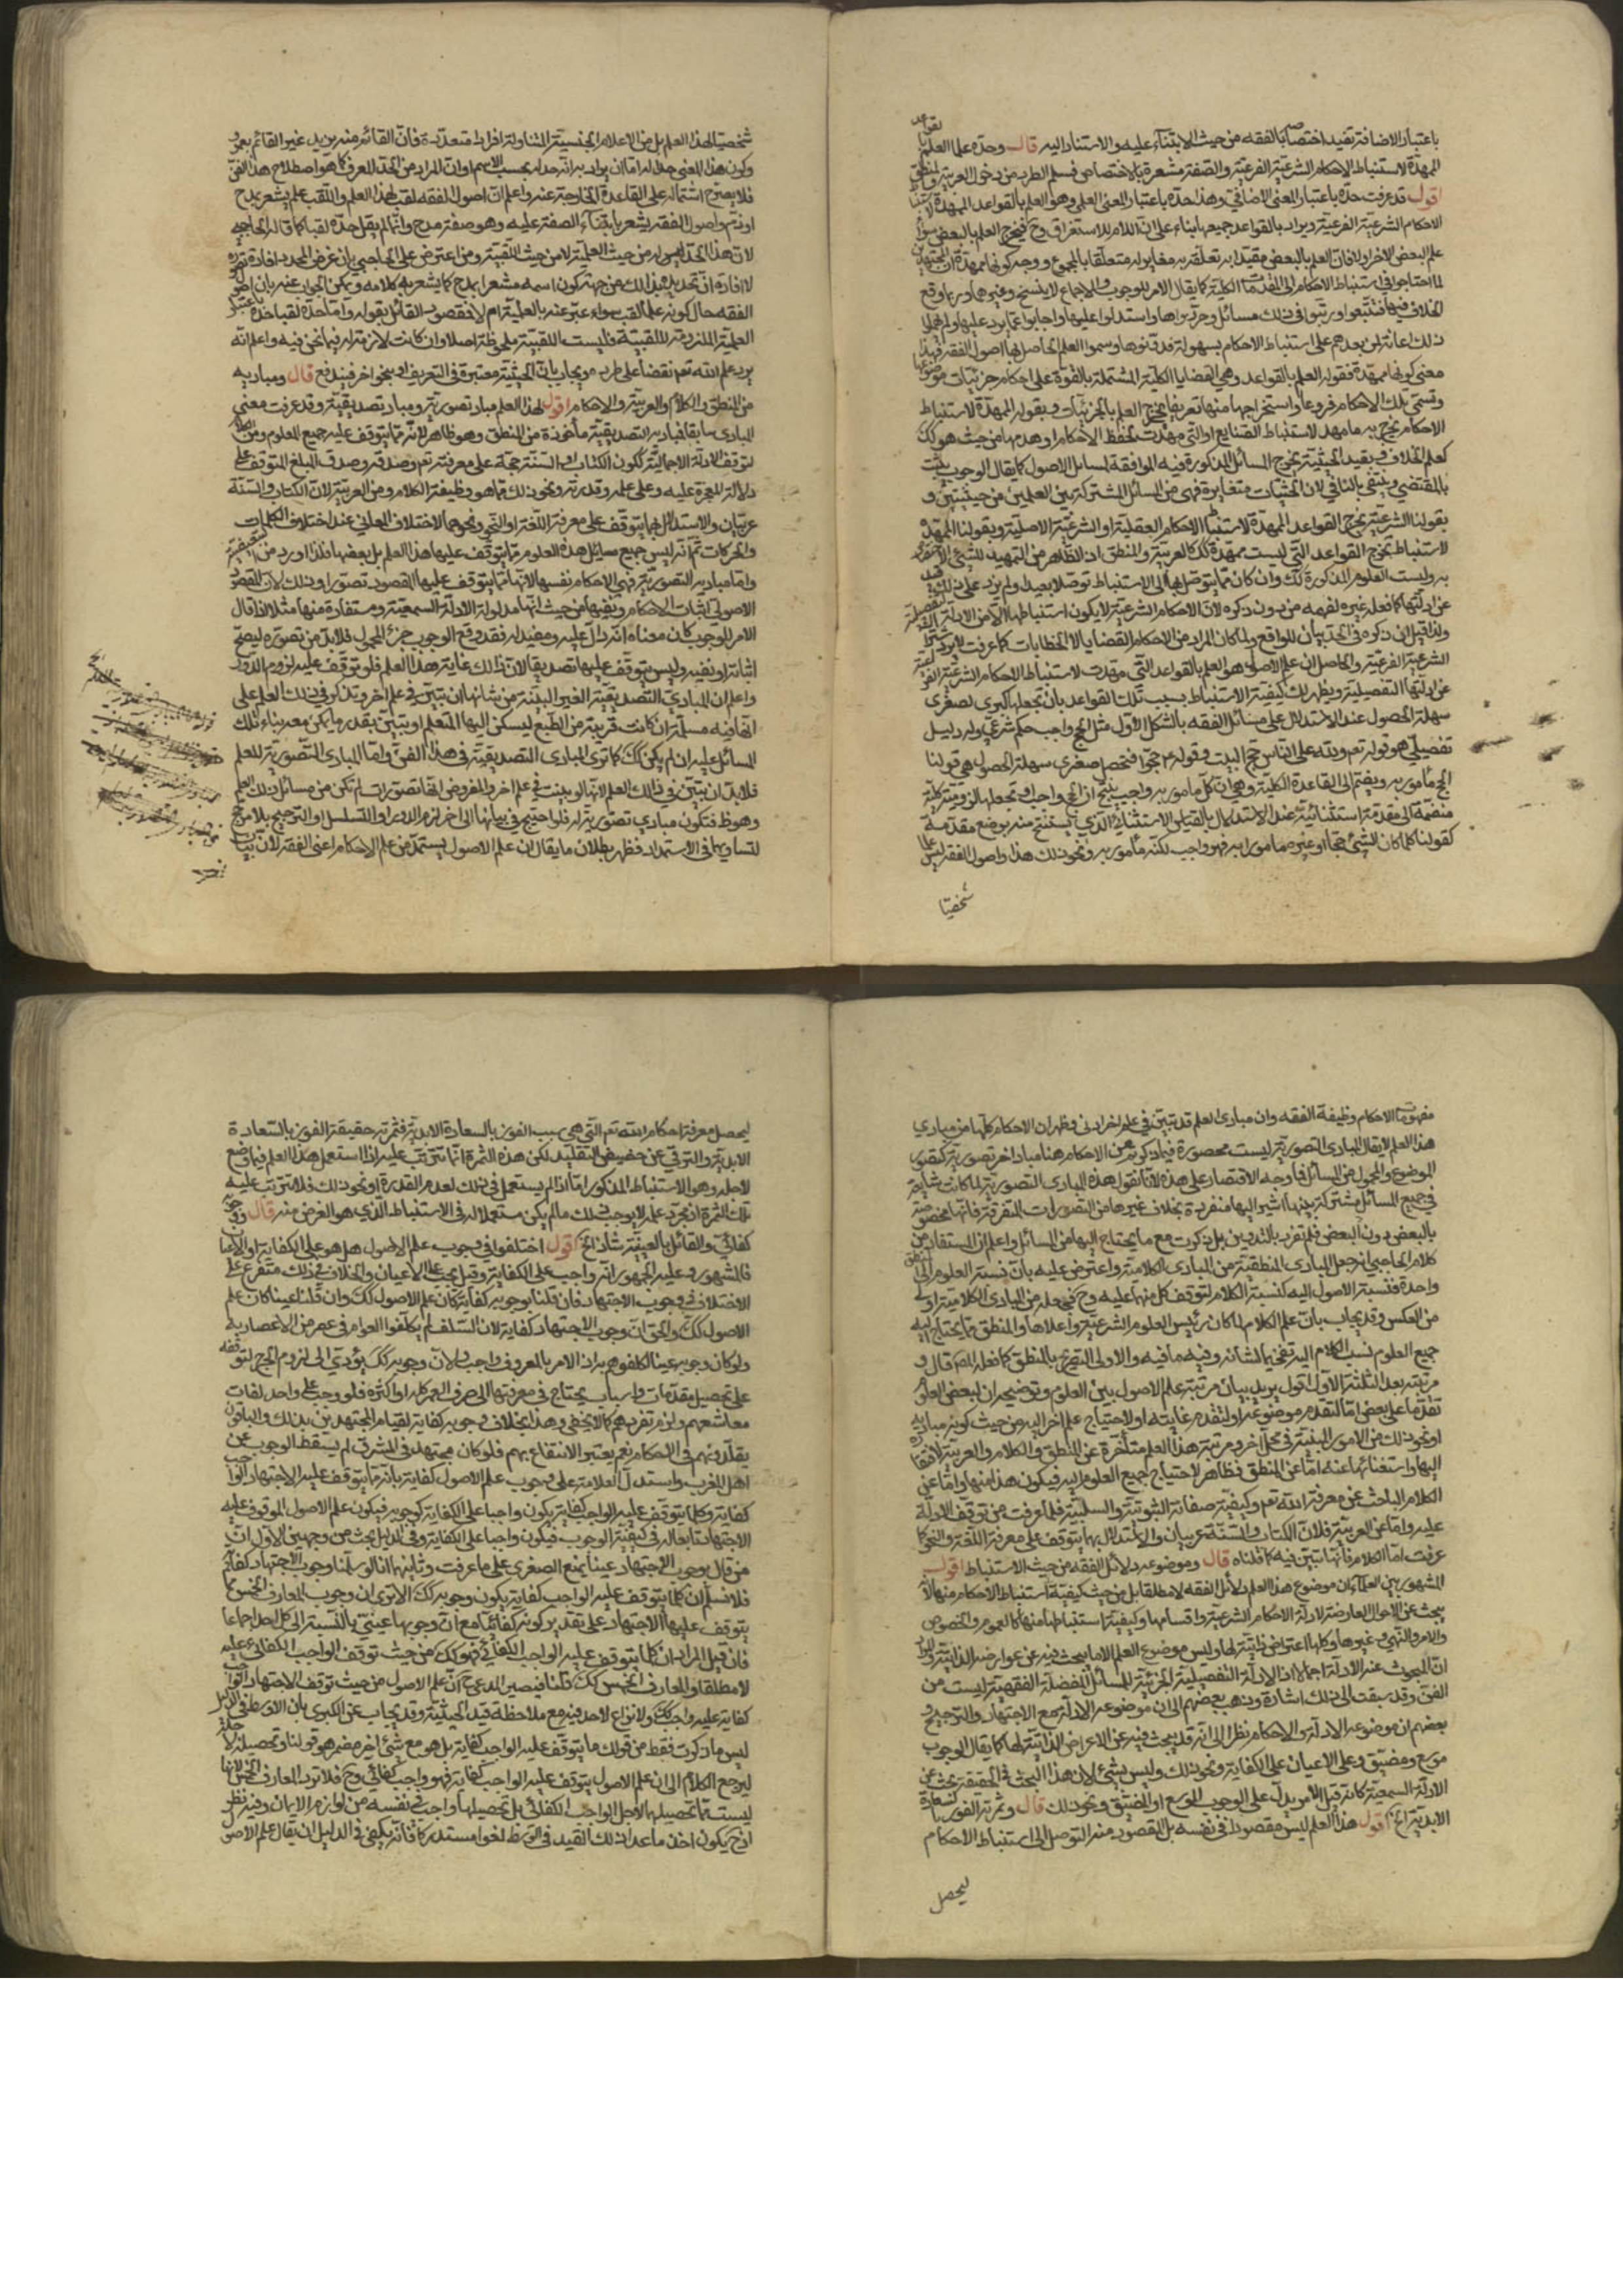 باعتبار الاضافة تفيد اختصاصا بالفقه من حيث الابتناء عليه والاستناد اليه قال وحده علما العلم بالقواعد
الممهدة لاستنباط الاحكام الشرعية الفرعية والصفة مشعرة بالاختصاص فسلم الطرد من دخول العربية والمنطق
اقول قد عرفت حده باعتبار المعنى الاضافي وهذا حده باعتبار المعنى العلمي وهو العلم بالقواعد الممهدة لاستنباط
الاحكام الشرعية الفرعية ويراد بالقواعد جميعها بناء على ان اللام للاستغراق وح فيخرج العلم بالبعض سواء
علم البعض الاخر اولا فان العلم بالبعض مقيدا به تعلقه به مغاير له متعلقا بالمجموع ووجه كونها ممهدة ان المجتهدين
لما احتاجوا في استنباط الاحكام الى المقدمات الكلية كما يقال الامر للوجوب والاجماع لا ينسخ وغيرها وربما وقع
الخلاف فيها فتتبعوا ورتبوا في ذلك مسائل وحرروها واستدلوا عليها واجابوا عما يرد عليها ولم يهملوا
ذلك اعانة لمن بعدهم على استنباط الاحكام بسهولة فدونوها وسموا العلم الحاصل بها اصول الفقه فهذا
معنى كونها ممهدة فقوله العلم بالقواعد وهي القضايا الكلية المشتملة بالقوة على احكام جزئيات موضوعها
وتسمى تلك الاحكام فروعا واستخراجها منها تفريعا يخرج العلم بالجزئيات وبقوله الممهدة لاستنباط
الاحكام يخرج به ما مهد لاستنباط الصنايع او التي مهدت لحفظ الاحكام او هدمها من حيث هو كك
كعلم الخلاف وبقيد الحيثية يخرج المسائل المذكورة فيه الموافقة لمسائل الاصول كما يقال الوجوب يثبت
بالمقتضي وينتفي بالنافي لان الحيثيات متغايرة فهي من المسائل المشتركة بين العلمين من حيثيتين و
بقولنا الشرعية يخرج القواعد الممهدة لاستنباط الاحكام العقلية او الشرعية الاصلية وبقولنا الممهدة
لاستنباط تخرج القواعد التي ليست ممهدة لذلك كالعربية والمنطق اذ الظاهر من التمهيد للشيء
به وليست العلوم المذكورة كك وان كان مما يتوصل بها الى الاستنباط توصلا بعيدا ولم يزد على ذلك قيد
عن ادلتها كما فعله غيره لفهمه من دون ذكره لان الاحكام الشرعية لا يكون استنباطها الا من الادلة التفصيلية
ولذا قيل ان ذكره في الحد بيان للواقع ولما كان المراد من الاحكام القضايا لا الخطابات كما عرفت
الشرعية الفرعية والحاصل ان علم الاصول هو العلم بالقواعد التي مهدت لاستنباط الاحكام الشرعية الفرعية
عن ادلتها التفصيلية ويظهر لك كيفية الاستنباط بسبب تلك القواعد بان تجعلها كبرى لصغرى
سهلة الحصول عند الاستدلال على مسائل الفقه بالشكل الاول مثل الحج واجب حكم شرعي وله دليل
تفصيلي هو قوله تعم ولله على الناس حج البيت وقوله ع حجوا فتحصل صغرى سهلة الحصول هي قولنا
الحج مأمور به ويضم الى القاعدة الكلية وهي ان كل مأمور به واجب ينتج ان الحج واجب او تجعلها
منضمة الى مقدمة استثنائية عند الاستدلال بالقياس الاستثنائي الذي يستنتج منه بوضع مقدمة
كقولنا كلما كان الشيء حجا او غيره مأمورا به فهو واجب لكنه مأمور به ونحو ذلك هذا واصول الفقه ليس علما
شخصيا
شخصيا لهذا العلم بل من الاعلام الجنسية المتناولة افرادا متعددة فان القائم منه بزيد غير القائم بعمرو
وكون هذا المعنى حدا له اما ان يراد به انه حد له بحسب الاسم او ان المراد من الحد المعرف كما هو اصطلاح هذا الفن
فلا يصح اشتماله على القاعدة الخارجة عنه واعلم ان اصول الفقه لقب لهذا العلم واللقب علم يشعر بمدح
او ذم واصول الفقه يشعر بابتناء الصفة عليه وهو صفة مدح وانما لم يقل حده لقبا كما قاله الحاجبي
لان هذا الحد ليس له من حيث العلمية لا من حيث اللقبية ومن اعترض على الحاجبي بان غرض المحدد افادة تصوره
لا افادة ان تحديده لذلك من جهة كون اسمه مشعرا بمدح كما يشعر به كلامه ويمكن الجواب عنه بان اصول
الفقه حال كونه علما لقب سواء عبر عنه بالعلمية ام لا فمقصود القائل بقوله واما حده لقبا حده باعتبار
العلمية الملزومة للقبية فليست اللقبية ملحوظة اصلا وان كانت لازمة له فيما نحن فيه واعلم انه
يرد علم الله تعم نقضا على طرده ويجاب بان الحيثية معتبرة في التعريف او بنحو اخر فيندفع قال ومباديه
من المنطق والكلام والعربية والاحكام اقول لهذا العلم مباد تصورية ومباد تصديقية وقد عرفت معنى
المبادي سابقا فمباديه التصديقية مأخوذة من المنطق وهو ظاهر لانه مما يتوقف عليه جميع العلوم ومن الكلام
لتوقف الادلة الاجمالية ككون الكتاب او السنة حجة على معرفته تعم وصدقه وصدق المبلغ المتوقف على
دلالة المعجزة عليه وعلى علمه وقدرته ونحو ذلك مما هو وظيفة الكلام ومن العربية لان الكتاب والسنة
عربيان والاستدلال بهما يتوقف على معرفة اللغة او النحو ونحوهما لاختلاف المعاني عند اختلاف الكلمات
والحركات ثم انه ليس جميع مسائل هذه العلوم مما يتوقف عليها هذا العلم بل بعضها فلذا اورد من التبعيضية
واما مباديه التصورية فهي الاحكام نفسها لانها مما يتوقف عليها المقصود تصورا وذلك لان المقصود
الاصولي اثبات الاحكام ونفيها من حيث انها مدلولة الادلة السمعية ومستفادة منها مثلا اذا قال
الامر للوجوب كان معناه انه دال عليه ومفيد له فقد وقع الوجوب جزء المحمول فلا بد من تصوره ليصح
اثباته او نفيه وليس يتوقف عليها تصديقا لان ذلك غاية هذا العلم فلو توقف عليه لزم الدور
واعلم ان المبادي التصديقية الغير البينة من شانها ان يتبين في علم اخر وتذكر في ذلك العلم على
انها فيه مسلمة ان كانت قريبة من الطبع ليسكن اليها المتعلم او يتبين بقدر ما يمكن معه بناء تلك
المسائل عليه ان لم يكن كك كما ترى المبادي التصديقية في هذا الفن واما المبادي التصورية للعلم
فلا بد ان يتبين في ذلك العلم لانها لو بينت في علم اخر والمفروض انها تصورات لم تكن من مسائل ذلك العلم
وهو ظ فتكون مبادي تصورية له فلو احتيج في بيانها الى اخر لزم الدور او التسلسل او الترجيح بلا مرجح
لتساويهما في الاستمداد فظهر بطلان ما يقال ان علم الاصول يستمد من علم الاحكام اعني الفقه لان بيان
مفهومات الاحكام وظيفة الفقه وان مبادي العلم قد تبين في علم اخر ادنى وظهر ان الاحكام كلها من مبادي
هذا العلم لا يقال المبادي التصورية ليست محصورة فيما ذكرتم من الاحكام هنا مباد اخر تصورية كتصور
الموضوع والمحمول من المسائل فما وجه الاقتصار على هذه لانا نقول هذه المبادي التصورية لما كانت شايعة
في جميع المسائل مشتركة بينها اشير اليها منفردة بخلاف غيرها من التصورات المتفرقة فانها مخصوصة
بالبعض دون البعض فلم تفرد بالتدوين بل ذكرت مع ما يحتاج اليها من المسائل واعلم ان المستفاد من
كلام الحاجبي انه جعل المبادي المنطقية من المبادي الكلامية واعترض عليه بان نسبة العلوم الى المنطق
واحدة فنسبة الاصول اليه كنسبة الكلام لتوقف كل منهما عليه وح فجعله من المبادي الكلامية اولى
من العكس وقد يجاب بان علم الكلام لما كان رئيس العلوم الشرعية واعلاها والمنطق مما يحتاج اليه
جميع العلوم نسب الكلام اليه تفخيما لشانه وفيه ما فيه والاولى التصريح بالمنطق كما فعله المص قال و
مرتبته بعد الثلثة الاول اقول يريد بيان مرتبة علم الاصول بين العلوم وتوضيحه ان لبعض العلوم
تقدما على بعض اما لتقدم موضوعه او لتقدم غايته او لاحتياج علم اخر اليه من حيث كونه مباديه
او نحو ذلك من الامور المبينة في محل اخر ومرتبة هذا العلم متأخرة عن المنطق والكلام والعربية لافتقاره
اليها واستغنائها عنه اما عن المنطق فظاهر لاحتياج جميع العلوم اليه فيكون هذا منها واما عن
الكلام الباحث عن معرفة الله تعم وكيفية صفاته الثبوتية والسلبية فلما عرفت من توقف الادلة
عليه واما عن العربية فلان الكتاب والسنة عربيان والاستدلال بهما يتوقف على معرفة اللغة والنحو كما
عرفت اما الاحكام فانها تبين فيه كما قلناه قال وموضوعه دلائل الفقه من حيث الاستنباط اقول
المشهور بين العلماء ان موضوع هذا العلم دلائل الفقه لا مطلقا بل من حيث كيفية استنباط الاحكام منها لانه
يبحث عن الاحوال العارضة لادلة الاحكام الشرعية واقسامها وكيفية استنباطها منها كالعموم والخصوص
والامر والنهي وغيرها وكلها اعراض ذاتية لها وليس موضوع العلم الا ما يبحث فيه عن عوارضه الذاتية والمراد
ان المبحوث عنه الادلة اجمالا اذ الادلة التفصيلية الجزئية للمسائل المفصلة الفقهية ليست من
الفن وقد سبقت الى ذلك اشارة وذهب بعضهم الى ان موضوعه الادلة مع الاجتهاد والترجيح و
بعضهم ان موضوعه الادلة والاحكام نظرا الى انه قد يبحث فيه عن الاعراض الذاتية لها كما يقال الوجوب
موسع ومضيق وعلى الاعيان وعلى الكفاية ونحو ذلك وليس بشيء لان هذا البحث في الحقيقة بحث عن
الادلة السمعية كانه قيل الامر يدل على الوجوب الموسع او المضيق ونحو ذلك قال وثمرته الفوز بالسعادة
الابدية الخ اقول هذا العلم ليس مقصودا في نفسه بل المقصود منه التوصل الى استنباط الاحكام
ليحصل
ليحصل معرفة احكام الله تعم التي هي سبب الفوز بالسعادة الابدية فثمرته حقيقة الفوز بالسعادة
الابدية والترقي عن حضيض التقليد لكن هذه الثمرة انما تترتب عليه اذا استعمل هذا العلم فيما وضع
لاجله وهو الاستنباط المذكور اما اذا لم يستعمل في ذلك لعدم القدرة او نحو ذلك فلا تترتب عليه
تلك الثمرة اذ مجرد علمه لا يوجب ذلك ما لم يكن مستعملا له في الاستنباط الذي هو الغرض منه قال ووجوبه
كفائي والقائل بالعينية شاذ الخ اقول اختلفوا في وجوب علم الاصول هل هو على الكفاية او الاعيان
فالمشهور وعليه الجمهور انه واجب على الكفاية وقيل يجب على الاعيان والخلاف في ذلك متفرع على
الاختلاف في وجوب الاجتهاد فان قلنا بوجوبه كفاية كان علم الاصول كك وان قلنا عينا كان علم
الاصول كك والحق ان وجوب الاجتهاد كفاية لان السلف لم يكلفوا العوام في عصر من الاعصار به
ولو كان وجوبه عينا لكلفوهم به اذ الامر بالمعروف واجب ولان وجوبه كك يؤدي الى لزوم الحرج لتوقفه
على تحصيل مقدمات واسباب يحتاج في معرفتها الى صرف العمر كله او اكثره فلو وجب على واحد لفات
معاشهم ولزم تضررهم كما لا يخفى وهذا بخلاف وجوبه كفاية لقيام المجتهدين بذلك والباقون
يقلدونهم في الاحكام نعم يعتبر الانتفاع بهم فلو كان مجتهد في المشرق لم يسقط الوجوب عن
اهل المغرب واستدل العلامة على وجوب علم الاصول كفاية بانه مما يتوقف عليه الاجتهاد الواجب
كفاية وكلما يتوقف عليه الواجب كفاية يكون واجبا على الكفاية كوجوبه فيكون علم الاصول الموقوف عليه
الاجتهاد تابعا له في كيفية الوجوب فيكون واجبا على الكفاية وفي الدليل بحث من وجهين الاول ان
من قال بوجوب الاجتهاد عينا يمنع الصغرى على ما عرفت وثانيهما انا لو سلمنا وجوب الاجتهاد كفاية
فلا نسلم ان كلما يتوقف عليه الواجب كفاية يكون وجوبه كك الا ترى ان وجوب المعارف الخمس مما
يتوقف عليها الاجتهاد على تقدير كونه كفائيا مع ان وجوبها عيني بالنسبة الى كل احد اجماعا
فان قيل المراد ان كلما يتوقف عليه الواجب الكفائي فهو كك من حيث توقف الواجب الكفائي عليه
لا مطلقا والمعارف الخمس كك قلنا فيصير المدعى ح ان علم الاصول من حيث توقف الاجتهاد الواجب
كفاية عليه واجب كك ولا نزاع لاحد فيه مع ملاحظة قيد الحيثية وقد يجاب عن الكبرى بان الاوسط في الدليل
ليس ما ذكرت فقط من قولك ما يتوقف عليه الواجب كفاية بل هو مع شيء اخر مضمر هو قولنا وتحصيله لاجله
ليرجع الكلام الى ان علم الاصول يتوقف عليه الواجب كفاية فهو واجب كفائي وح فلا ترد المعارف الخمس لانها
ليست مما تحصيلها لاجل الواجب الكفائي بل تحصيلها واجب في نفسه من لوازم الايمان وفيه نظر
اذ ح يكون اخذ ما عدا ذلك القيد في الوسط لغوا مستدركا فانه يكفي في الدليل ان يقال علم الاصول